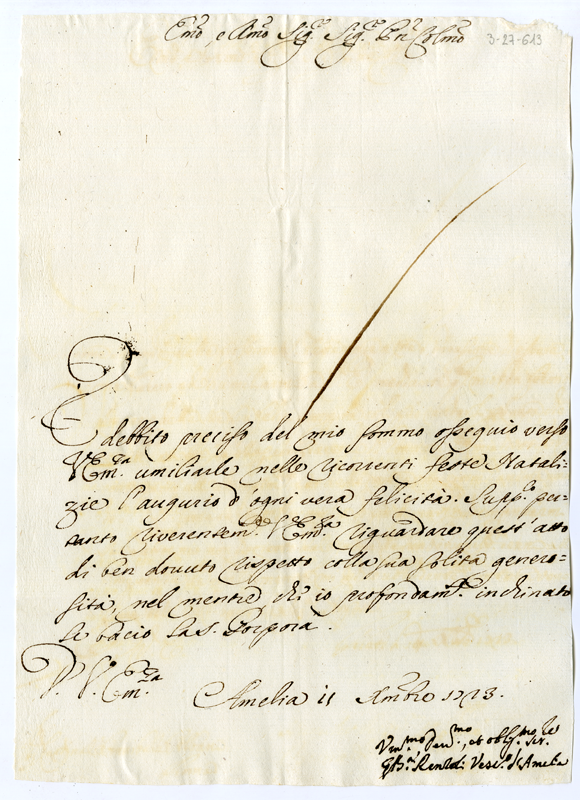 Emo, e Rmo Sigr. Sigr. Pne Colmo
3-27-613
E debbito preciso del mio sommo ossequio verso
V. Emza. umiliarle nelle ricorrenti feste Natali-
zie l'augurio d'ogni vera felicità. Suppco per-
tanto riverentemte. V. Emza. riguardare quest'atto
di ben dovuto rispetto colla sua solita genero-
sità, nel mentre ch'io profondamte. inchinato
le bacio la S. Porpora.
D. V. Emza.
Amelia 11 Xmbre 1723.
Umo Devmo, et oblmo Ser.
GBa Renzoli Vesco d'Amelia